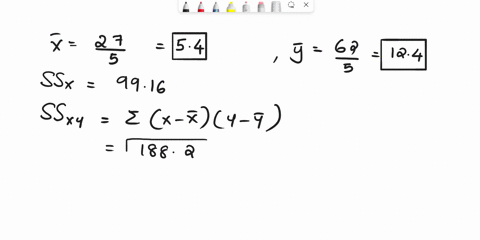 x̄ = 27/5 = 5.4 , ȳ = 62/5 = 12.4
SSx = 99.16
SSxy = Σ (x - x̄)(y - ȳ)
= 188.2